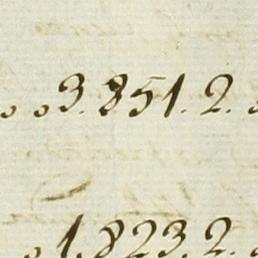 3.851.2.
1.823.2.